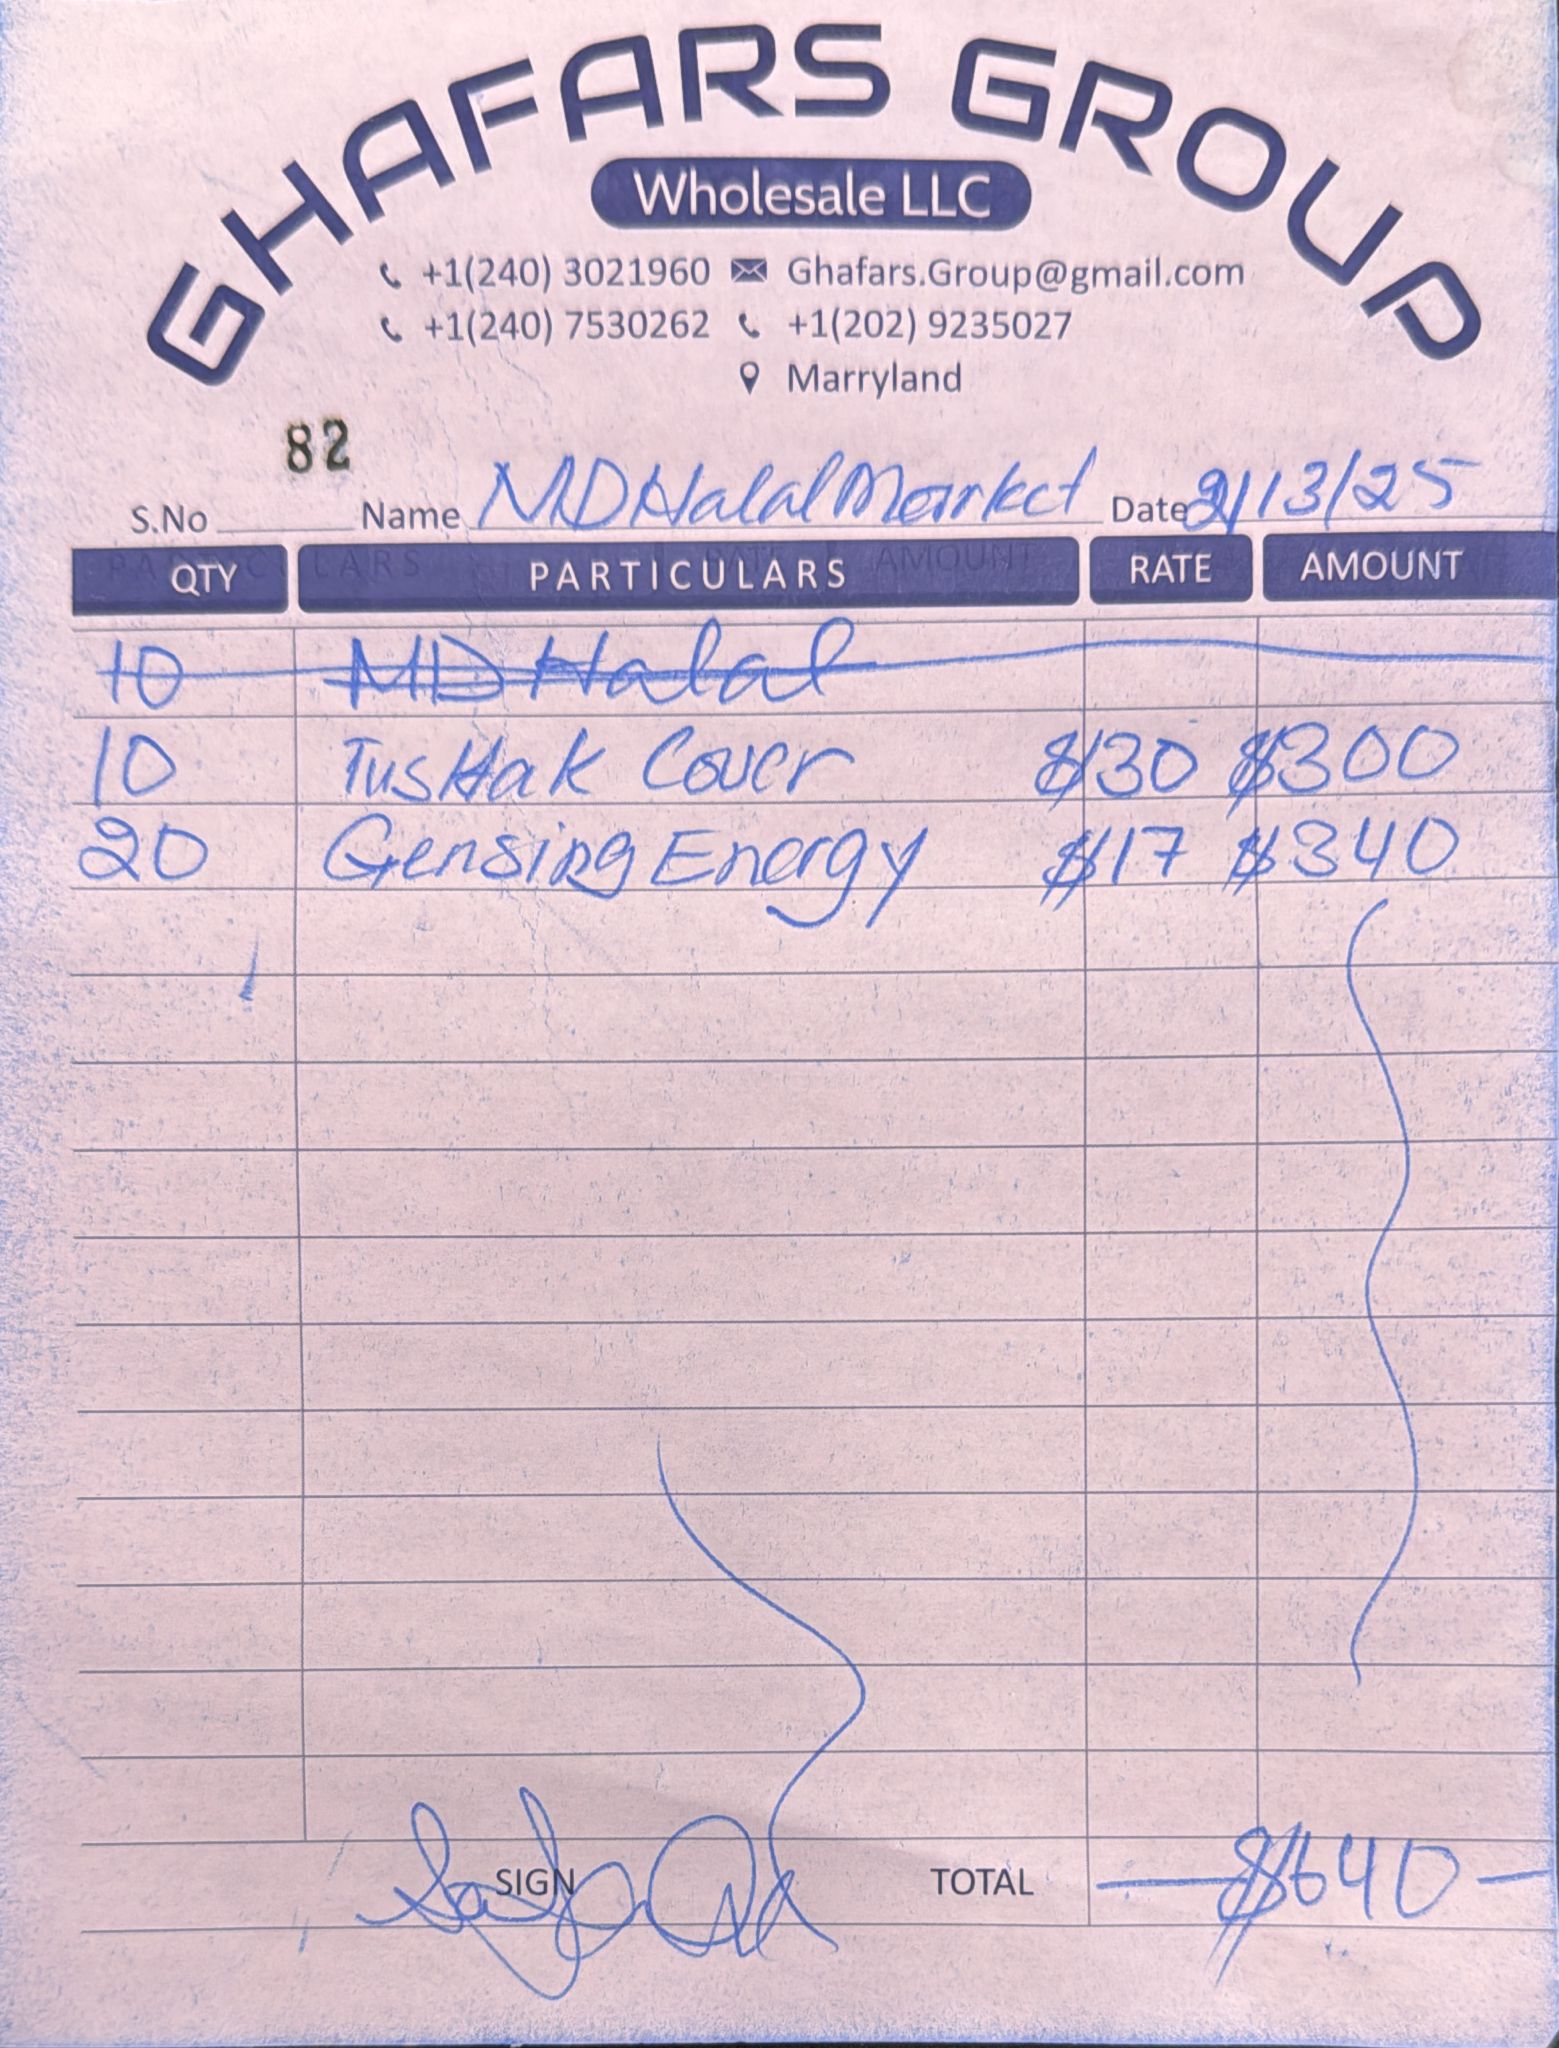 GHAFARS GROUP
Wholesale LLC
+1(240) 3021960 Ghafars.Group@gmail.com
+1(240) 7530262 +1(202) 9235027
Marryland
82
S.No Name MD Halal Market Date 2/13/25
QTY PARTICULARS RATE AMOUNT
10 MD Halal
10 TusHak Cover $30 $300
20 Gensing Energy $17 $340
SIGN TOTAL $640